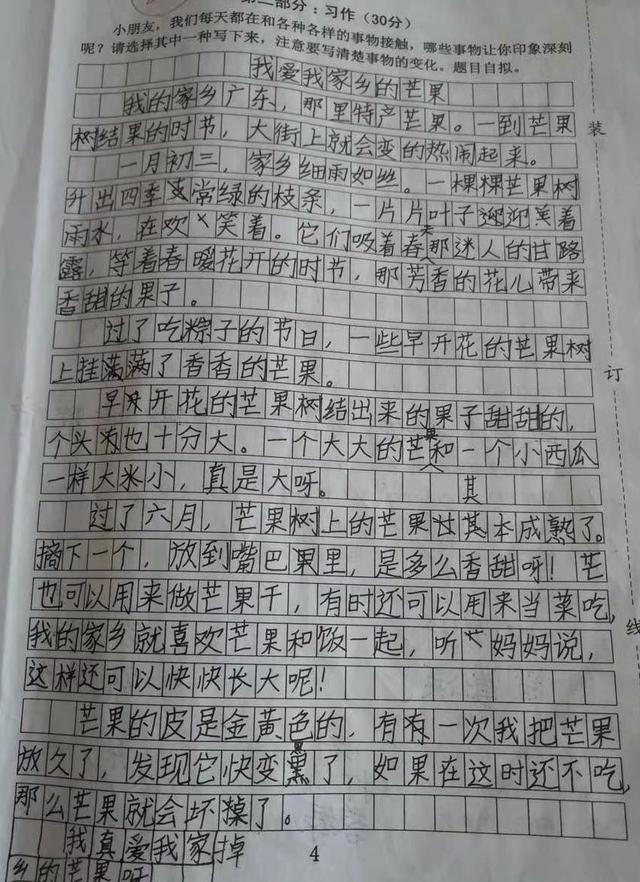 第二部分：习作（30分）
小朋友，我们每天都在和各种各样的事物接触，哪些事物让你印象深刻
呢？请选择其中一种写下来，注意要写清楚事物的变化。题目自拟。
我爱我家乡的芒果
我的家乡广东，那里特产芒果。一到芒果
树结果的时节，大街上就会变的热闹起来。
一月初三，家乡细雨如丝。一棵棵芒果树
升出四季常绿的枝条，一片片叶子迎着
雨水，在欢笑着。它们吸着春天那迷人的甘路
露，等着春暖花开的时节，那芳香的花儿带来
香甜的果子。
过了吃粽子的节日，一些早开花的芒果树
上挂满满了香香的芒果。
早开花的芒果树结出来的果子甜甜的，
个头也十分大。一个大大的芒果和一个小西瓜
一样大米小，真是大呀。
其
过了六月，芒果树上的芒果其本成熟了。
摘下一个，放到嘴巴里，是多么香甜呀！芒
也可以用来做芒果干，有时还可以用来当菜吃，
我的家乡就喜欢芒果和饭一起，听妈妈说，
这样还可以快快长大呢！
芒果的皮是金黄色的，有有一次我把芒果
放久了，发现它快变黑了，如果在这时还不吃，
那么芒果就会坏掉了。
我真爱我家掉
乡的芒果呀
4
装
订
线